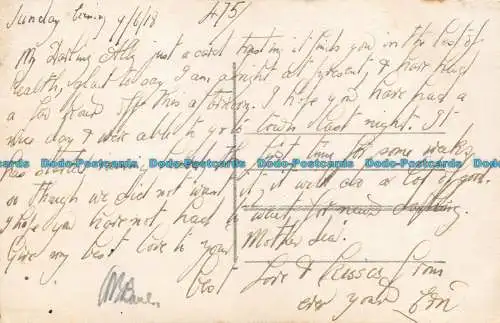 Sunday Evening 4/6/18 475/
My Darling Ally just a card trusting it finds you in the best of
health, glad to say I am alright at present, & have had
a this afternoon. I hope you have had a
nice day & were able to go to town last night. It
has started the first time for some weeks
Dodo-Postcards Dodo-Postcards Dodo-Postcards Dodo-Postcards Dodo-Postcards Dodo-Postcards
so though we did not want it, it will do a lot of good.
I hope you have not had to wait for news
Give my best love to your Mother dear.
best Love & Kisses from
ever your Ern